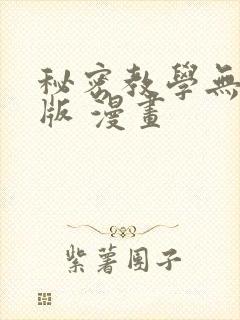 秘密教學無
版 漫畫
紫薯團子